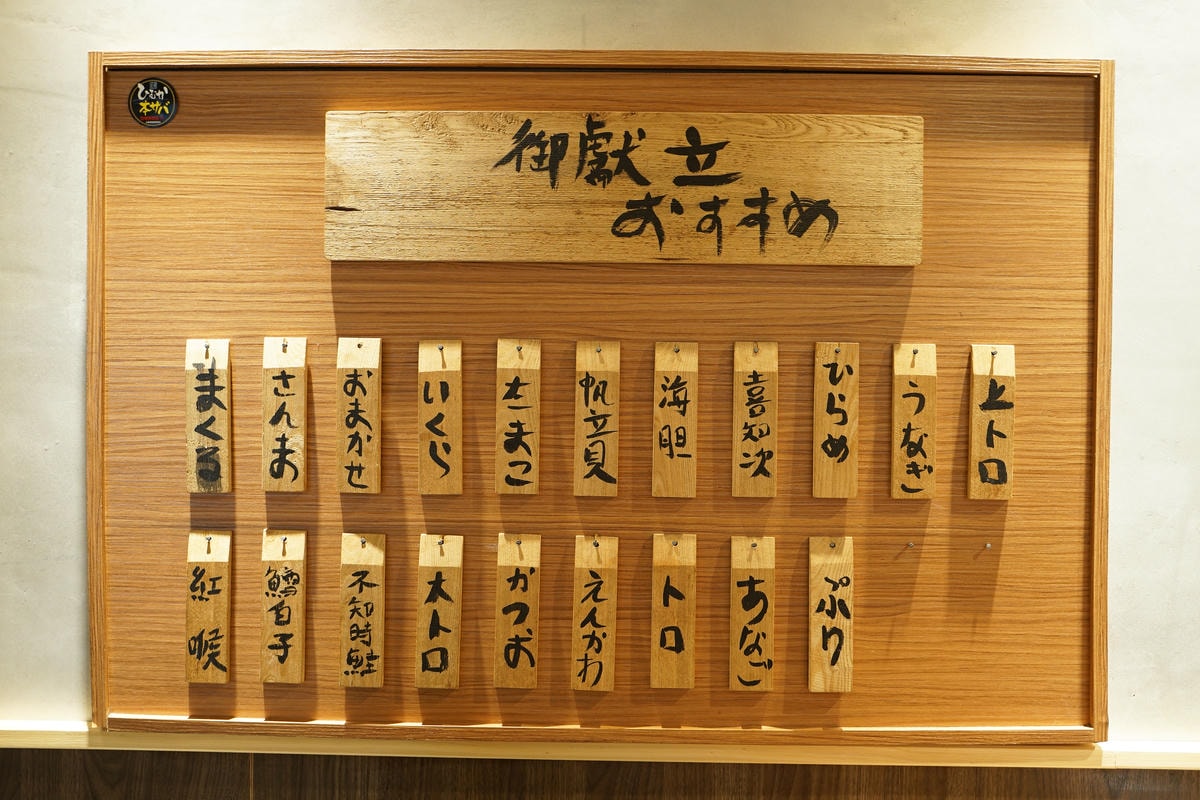 ひむか
本サバ
御獻立
おすすめ
まくる
さんま
おまかせ
いくら
たまこ
帆立貝
海胆
喜知次
ひらめ
うなぎ
上トロ
紅喉
鱈白子
不知時鮭
大トロ
かつお
えんがわ
トロ
あなご
ぷり